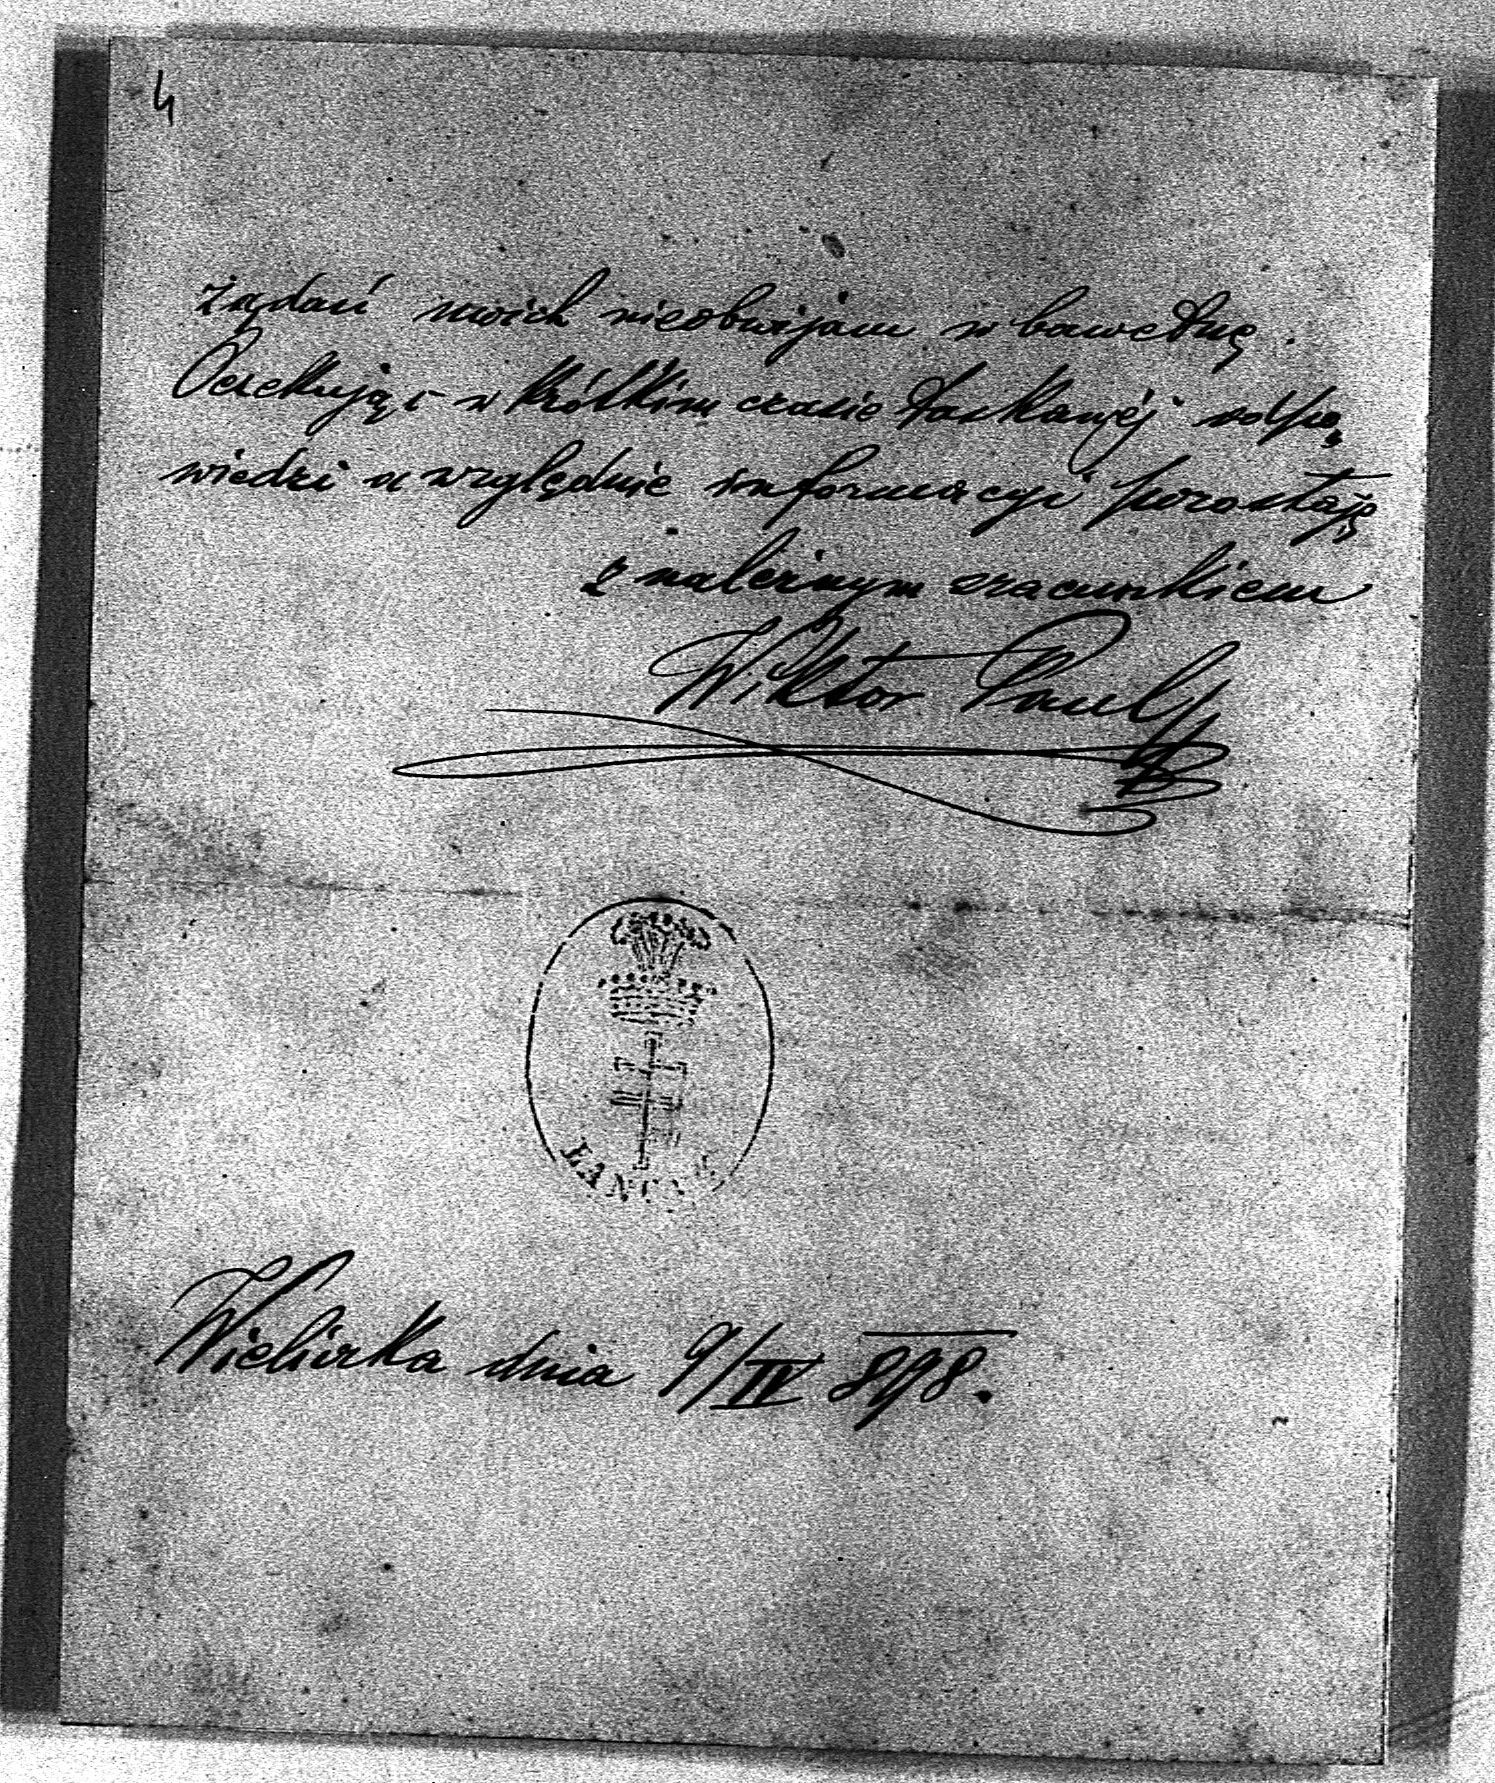 4
żądań swoich nieobwijam w bawełnę.
Oczekując w krótkim czasie łaskawéj odpo
wiedzi a względnie informacyi pozostaję
z należnym szacunkiem
Wiktor Pauly
ŁAŃCUT
Wieliczka dnia 9/IV 898.